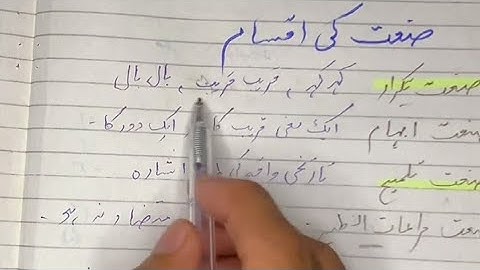 صنعت کی اقسام
صنعت تکرار کہہ کہہ، قریب قریب، بال بال
صنعت ابہام ایک معنی قریب کا ایک دور کا۔
صنعت تلمیح تاریخی واقعہ کی اشارہ
صنعت مراعات النظیر متضاد نہ ہو۔